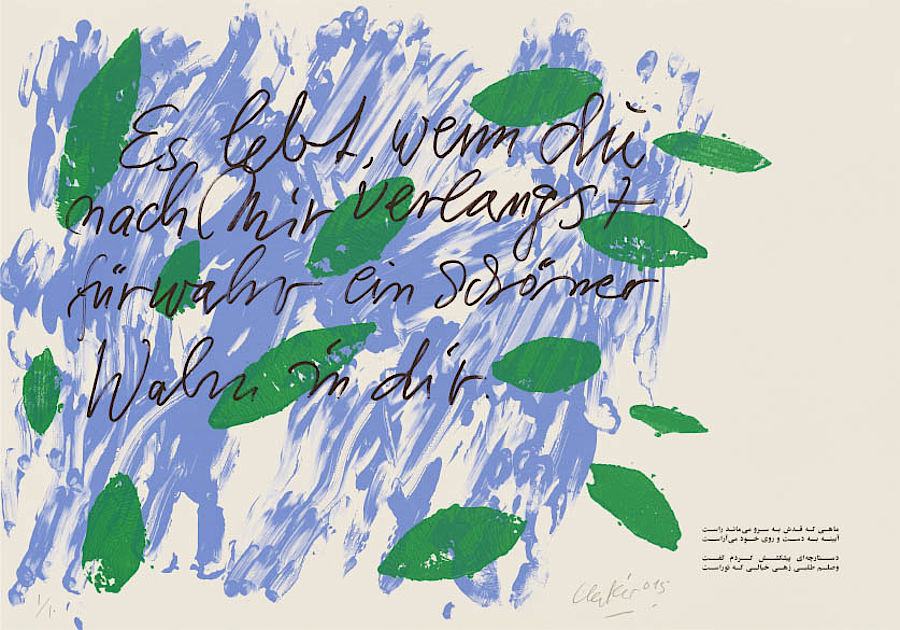 Es lebt, wenn du
nach mir verlangst,
fürwahr ein schöner
Wahn in dir.
ماهی که قدش به سرو می‌ماند راست
آیینه به دست و روی خود می‌آراست
دستارچه‌ای پیشکشش کردم گفت
وصلم طلبی زهی خیالی که توراست
1/1
015